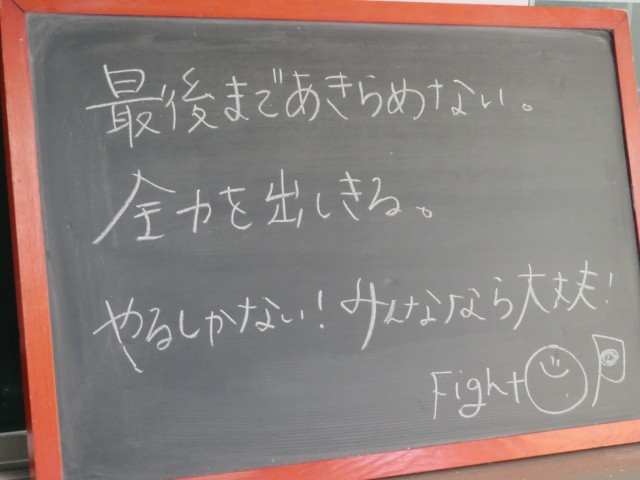 最後まであきらめない。
全力を出しきる。
やるしかない！みんななら大丈夫！
Fight